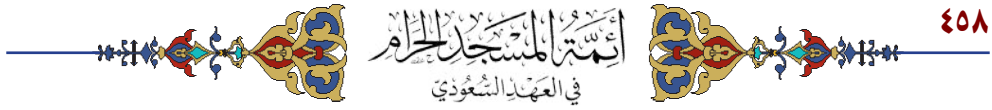 ٤٥٨
أَئِمَّةُ المَسْجَدِ الحَرَامِ
فِي العَهْدِ السُّعُودِيِّ